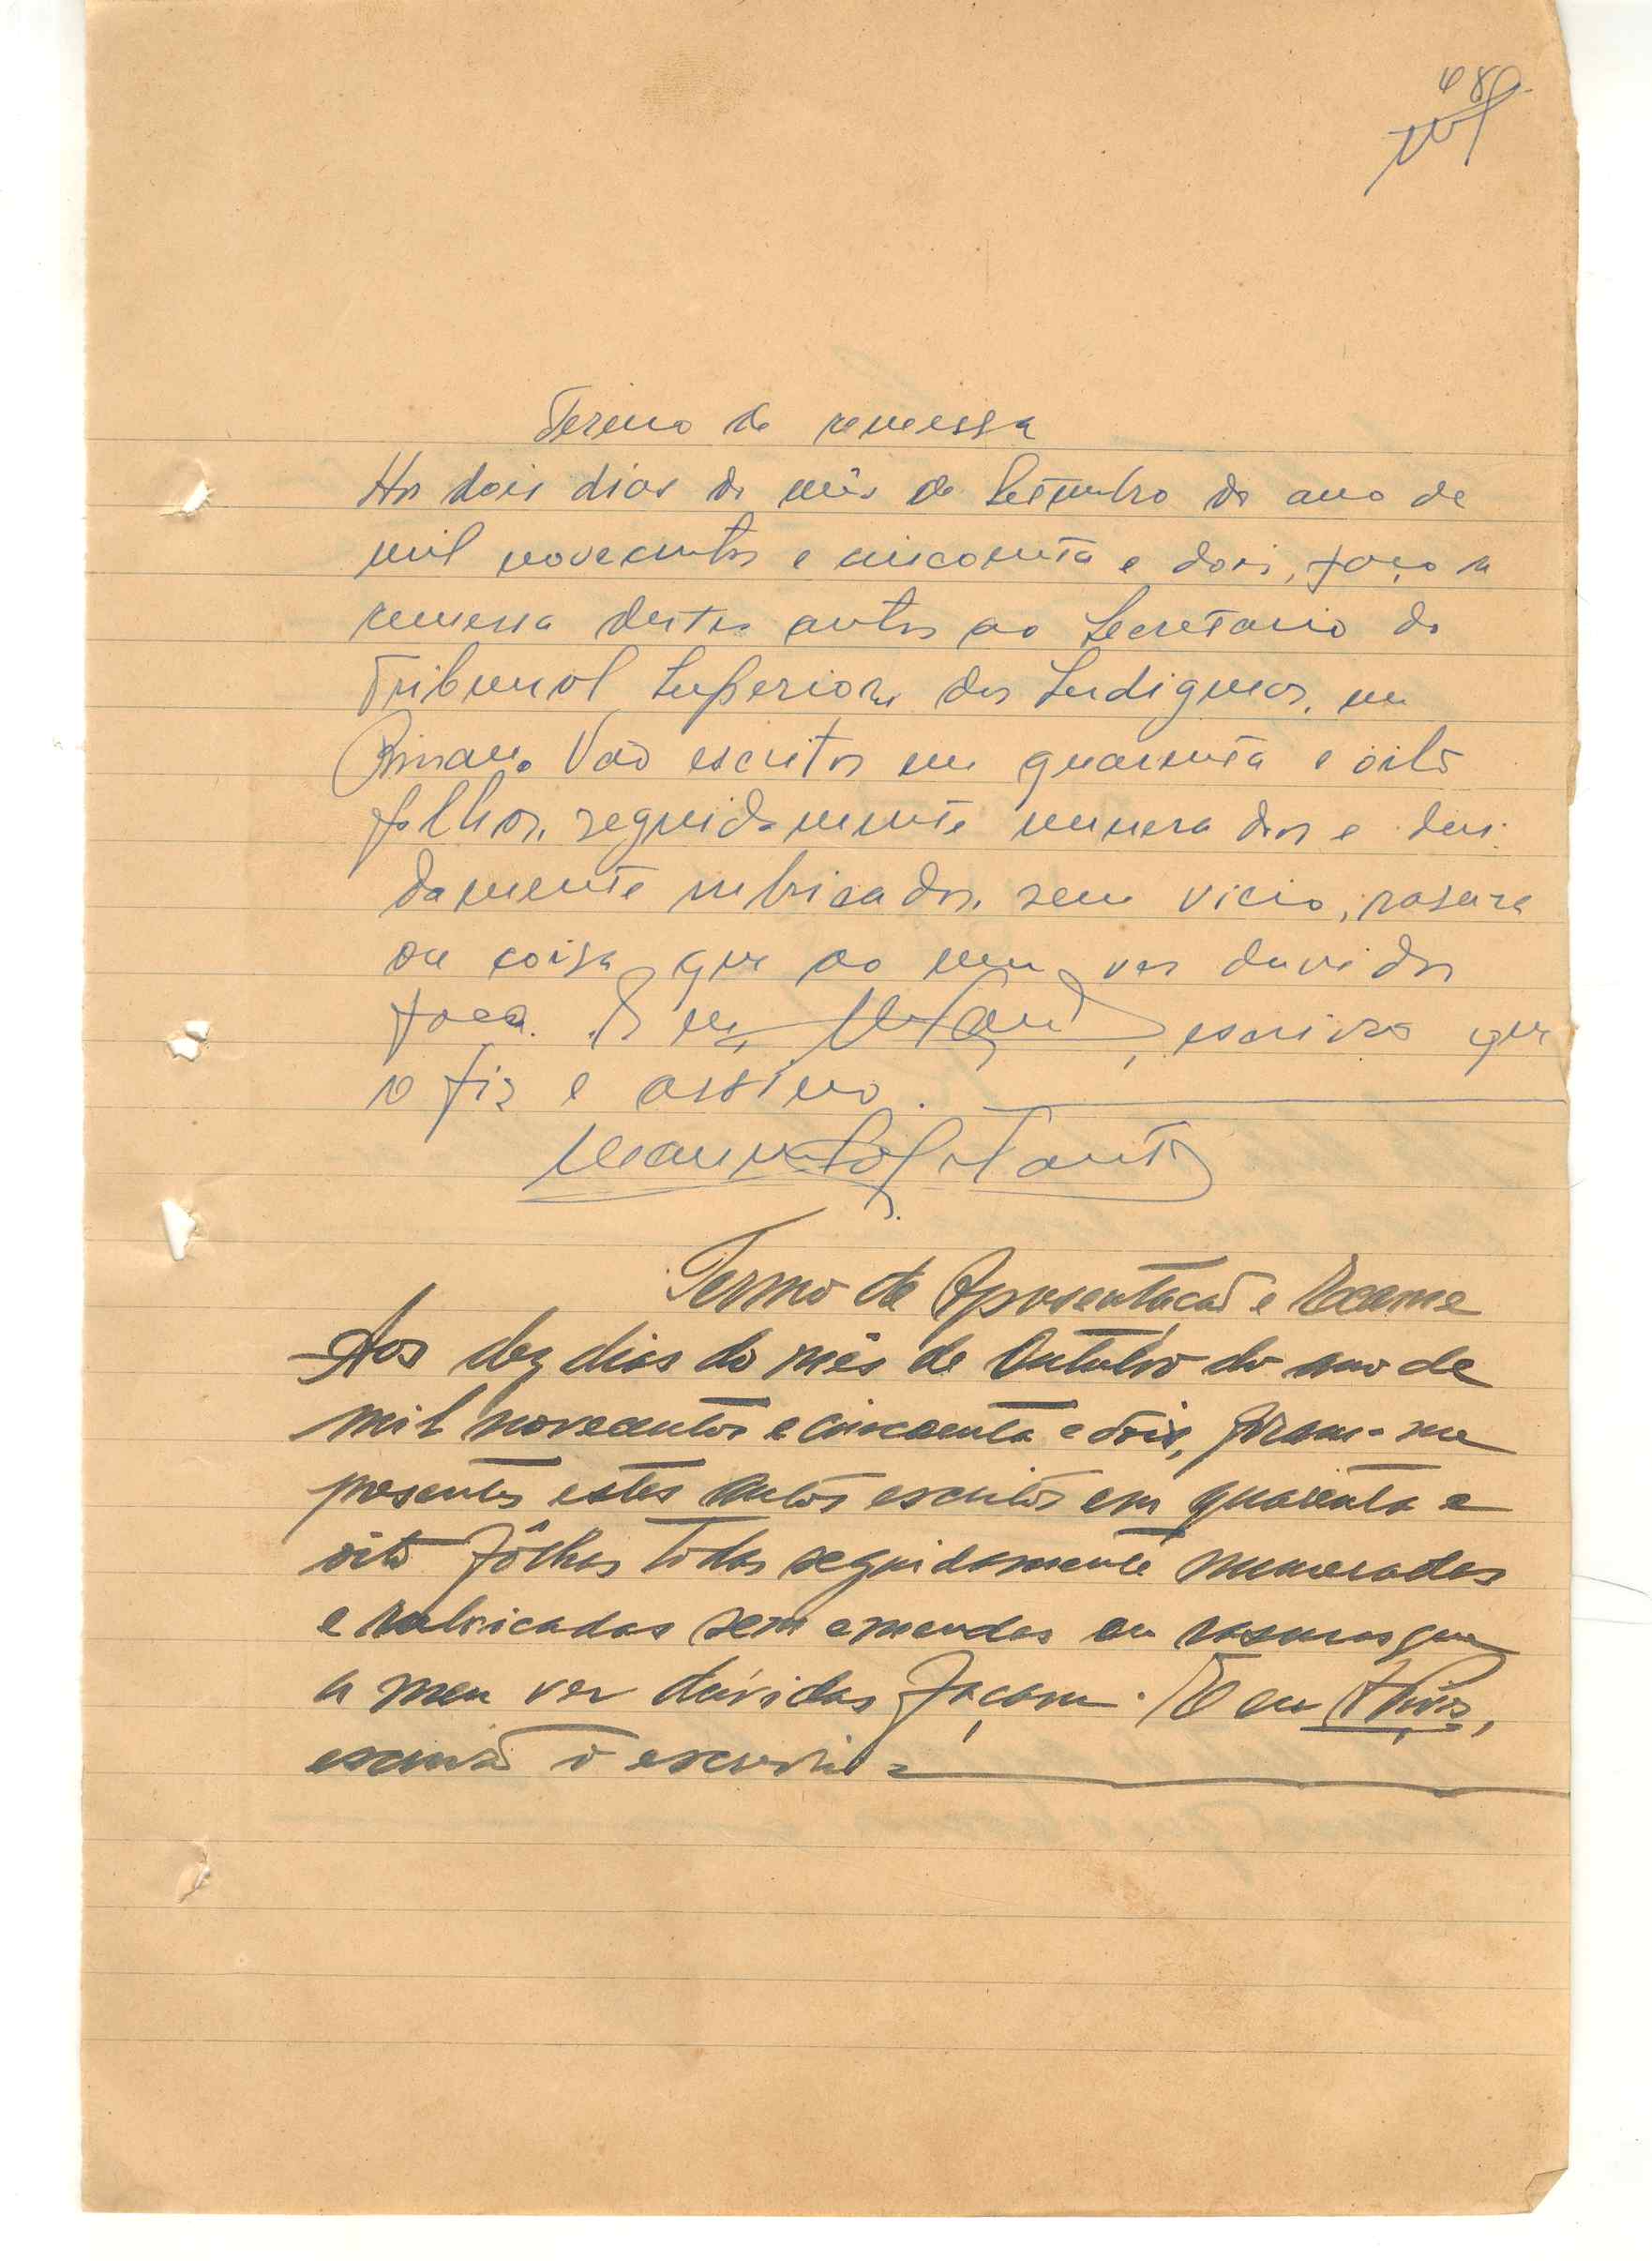 48
Termo de remessa
Aos dois dias do mês de Setembro do ano de
mil novecentos e cincoenta e dois, faço a
remessa destes autos ao Secretario do
Tribunal Superior dos Indigenas, em
Bissau. Vão escritos em quarenta e oito
folhas, seguidamente numeradas e devi-
damente rubricadas, sem vicio, rasura
ou coisa que ao meu ver duvidas
faça. E eu, escrivão que
o fiz e assino.
Termo de Apresentação e Exame
Aos dez dias do mês de Outubro do ano de
mil novecentos e cincoenta e dois, foram-me
presentes estes autos escritos em quarenta e
oito fôlhas todas seguidamente numeradas
e rubricadas sem emendas ou rasuras que
a meu ver dúvidas façam. E eu
escrivão o escrevi =